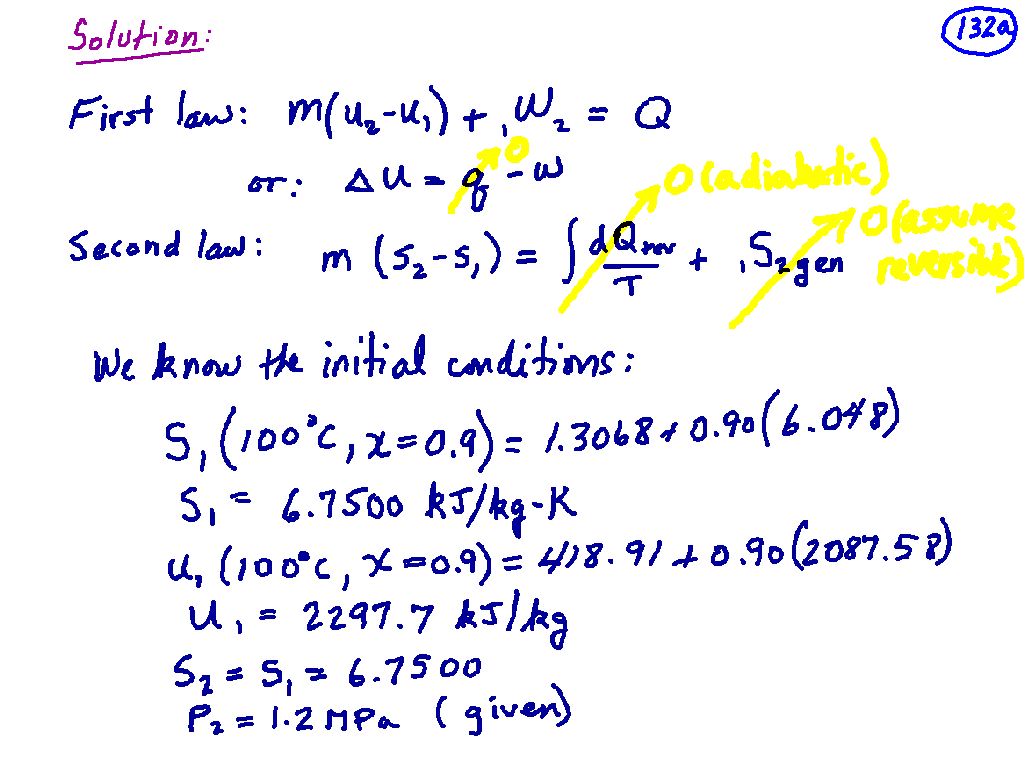 Solution:
132a
First law: m(u₂-u₁) + ₁W₂ = Q
or: Δu = q - w
0
0 (adiabatic)
Second law: m (s₂-s₁) = ∫ dQrev/T + ₁S₂ gen
0 (assume
reversible)
We know the initial conditions:
S₁ (100°C, x=0.9) = 1.3068 + 0.90(6.048)
S₁ = 6.7500 kJ/kg-K
u₁ (100°C, x=0.9) = 418.91 + 0.90(2087.58)
u₁ = 2297.7 kJ/kg
S₂ = S₁ = 6.7500
P₂ = 1.2 MPa (given)